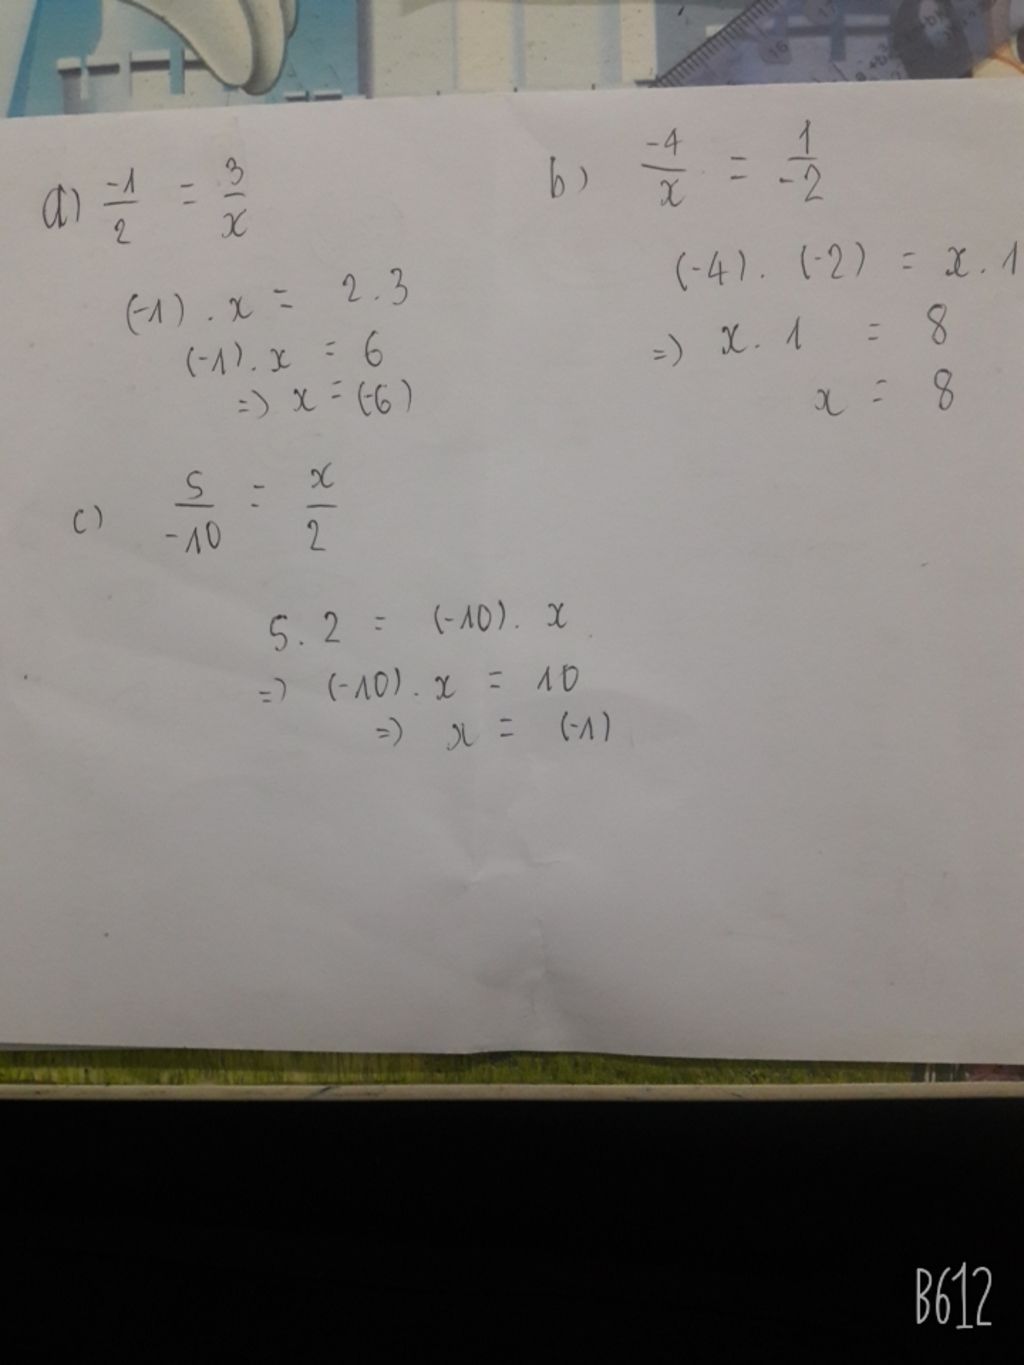 a) -1/2 = 3/x
(-1) . x = 2.3
(-1). x = 6
=> x = (-6)
b) -4/x = 1/-2
(-4). (-2) = x . 1
=> x. 1 = 8
x = 8
c) 5/-10 = x/2
5. 2 = (-10). x
=> (-10). x = 10
=> x = (-1)
B612